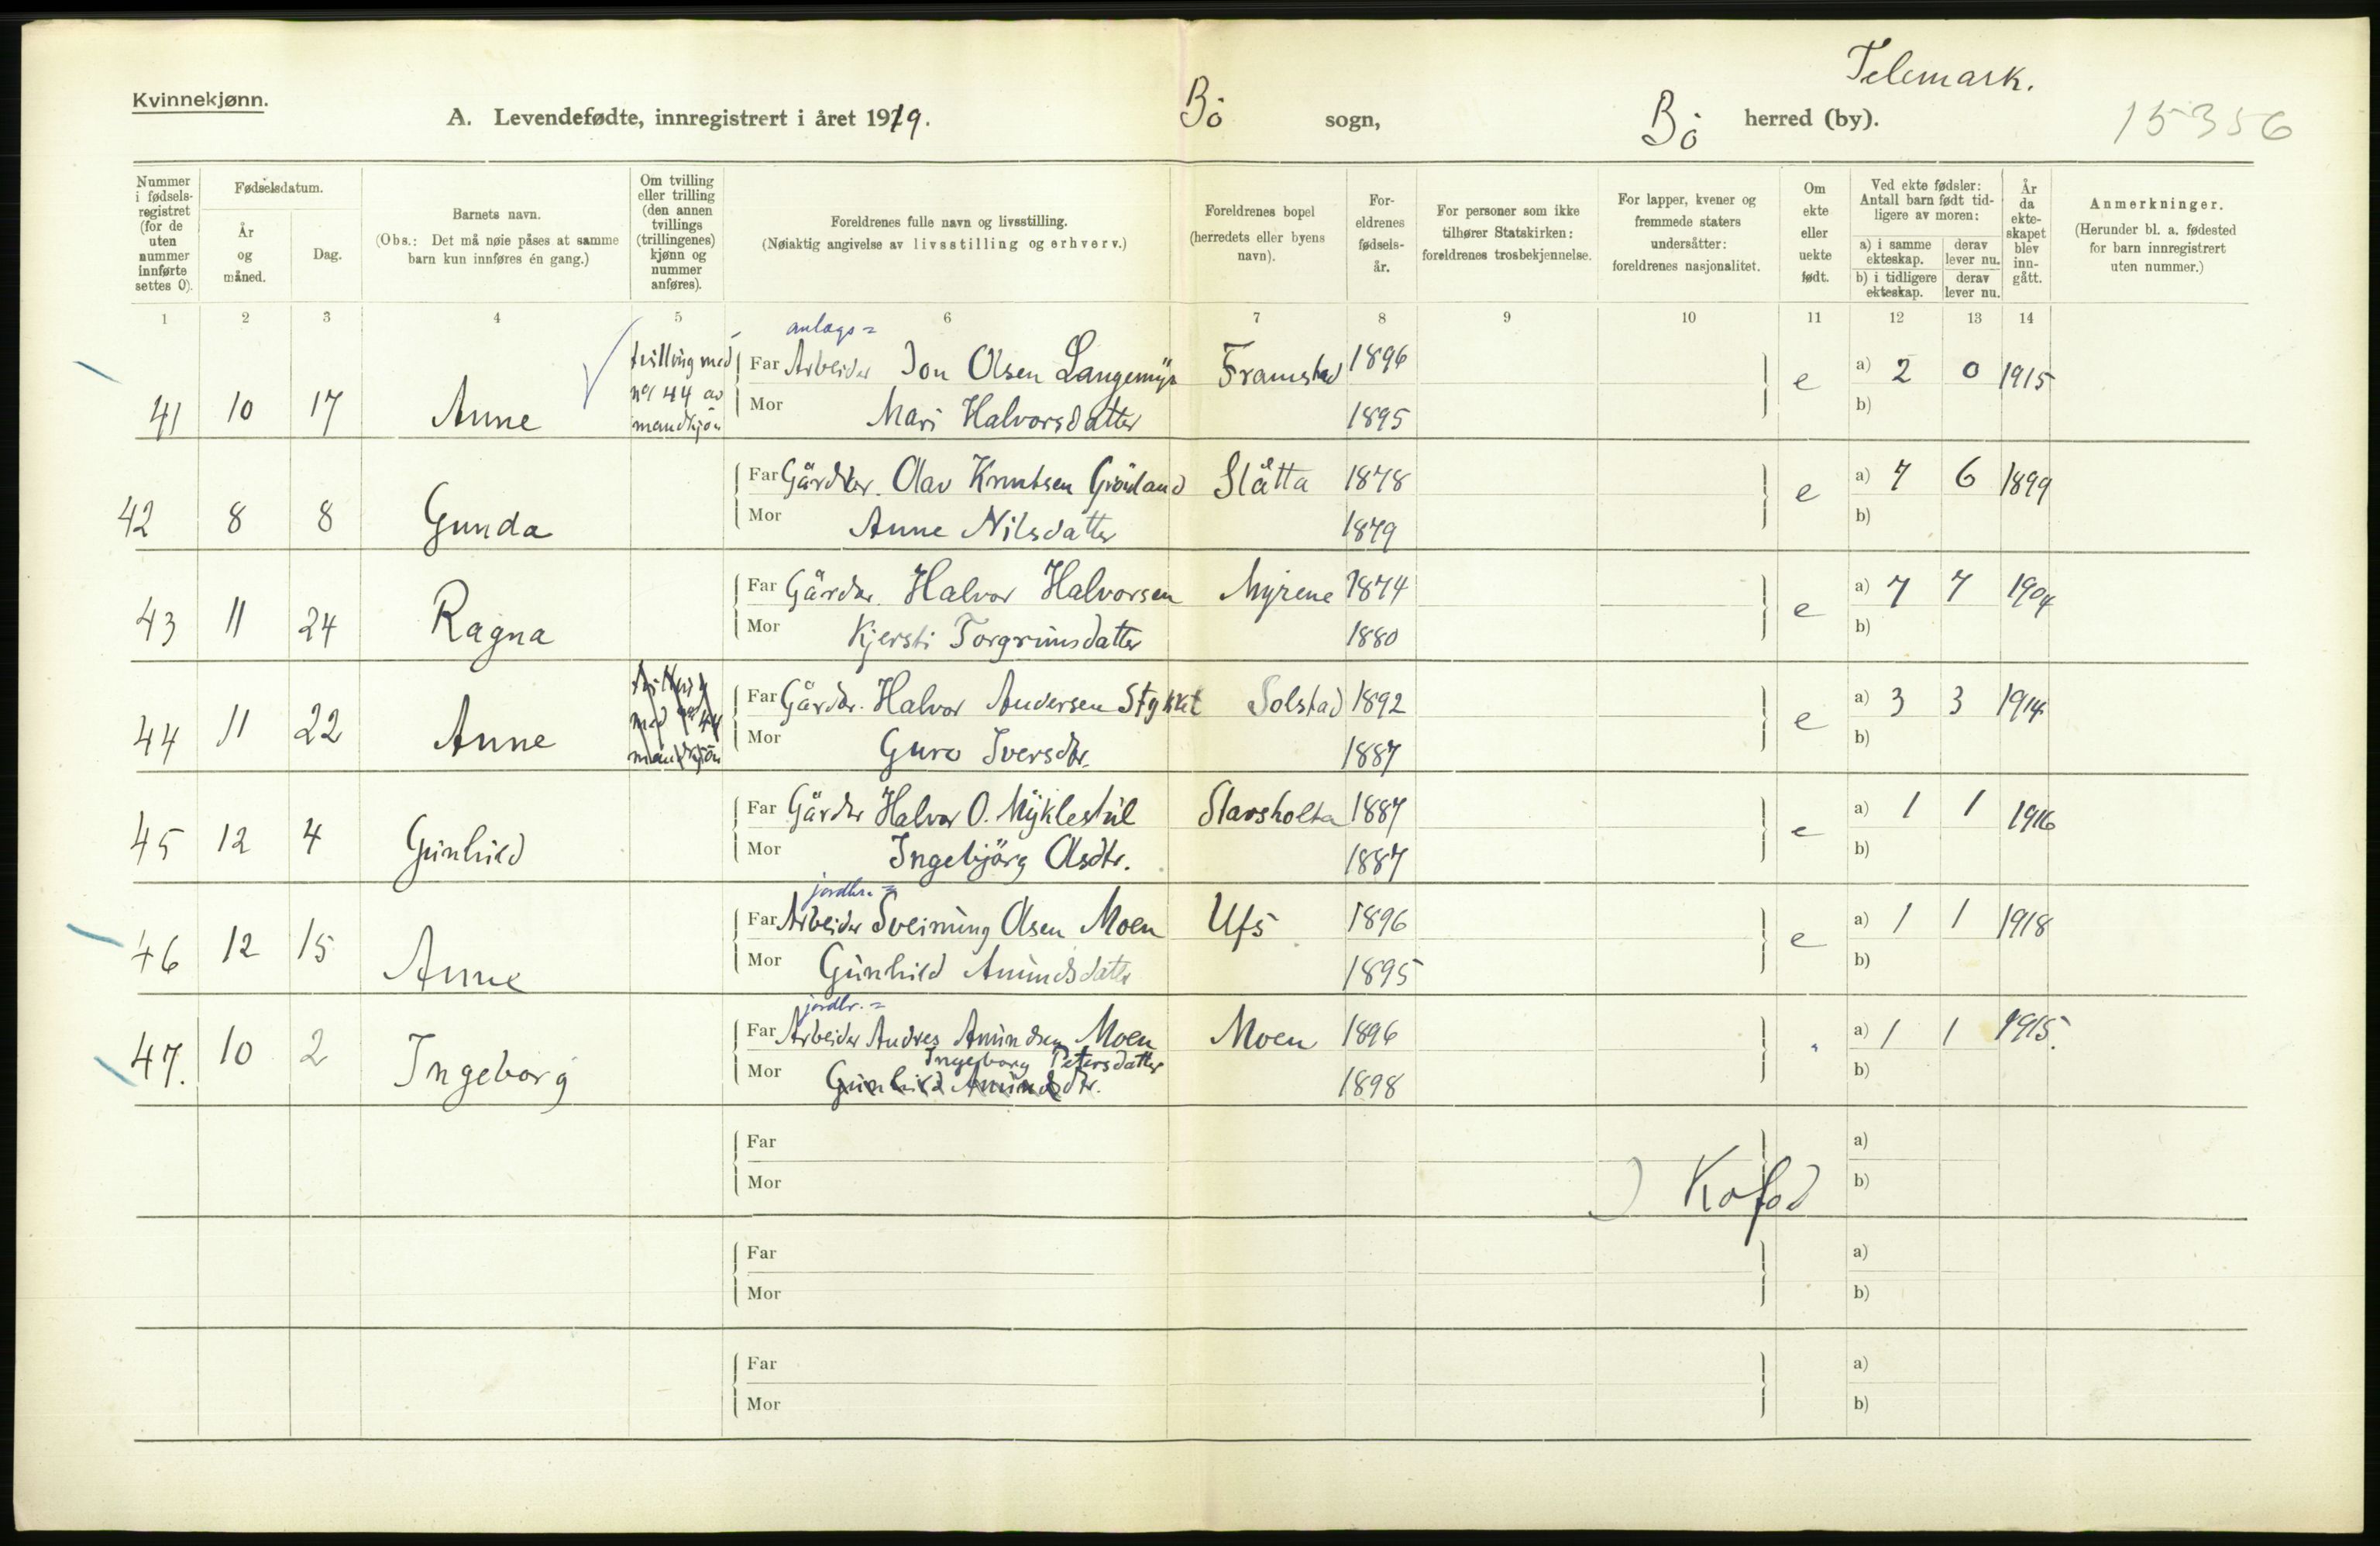 Telemark.
Kvinnekjønn.
A. Levendefødte, innregistrert i året 1919. Bö sogn, Bö herred (by). 15356
Nummer i fødsels-registret (for de uten nummer innførte settes 0).
Fødselsdatum.
År og måned.
Dag.
Barnets navn.
(Obs.: Det må nøie påses at samme barn kun innføres én gang.)
Om tvilling eller trilling (den annen tvillings (trillingenes) kjønn og nummer anføres).
Foreldrenes fulle navn og livsstilling.
(Nøiaktig angivelse av livsstilling og erhverv.)
Foreldrenes bopel (herredets eller byens navn).
For-eldrenes fødsels-år.
For personer som ikke tilhører Statskirken: foreldrenes trosbekjennelse.
For lapper, kvener og fremmede staters undersåtter: foreldrenes nasjonalitet.
Om ekte eller uekte født.
Ved ekte fødsler: Antall barn født tid-ligere av moren:
a) i samme ekteskap. derav lever nu.
b) i tidligere ekteskap. derav lever nu.
År da ekte-skapet blev inn-gått.
Anmerkninger.
(Herunder bl. a. fødested for barn innregistrert uten nummer.)
1 2 3 4 5 6 7 8 9 10 11 12 13 14
anlægs=
tvilling med nr 44 av mandkjön
Far Arbeider Jon Olsen Langemyr Framstad 1896 a) 2 0 1915
41 10 17 Anne Mor Mari Halvorsdatter 1895 e b)
Far Gårdbr. Olav Knutsen Gröiland Slåtta 1878 a) 7 6 1899
42 8 8 Gunda Mor Anne Nilsdatter 1879 e b)
Far Gårdbr. Halvor Halvorsen Myrene 1874 a) 7 7 1904
43 11 24 Ragna Mor Kjersti Torgrimsdatter 1880 e b)
tvilling med nr 44 mandkjön
Far Gårdbr. Halvor Andersen Stykket Solstad 1892 a) 3 3 1914
44 11 22 Anne Mor Guro Iversdtr. 1887 e b)
Far Gårdbr Halvor O. Myklestul Stavsholta 1887 a) 1 1 1916
45 12 4 Gunhild Mor Ingebjörg Olsdtr. 1887 e b)
jordbr.=
Far Arbeider Sveinung Olsen Moen Ufs 1896 a) 1 1 1918
46 12 15 Anne Mor Gunhild Amundsdatter 1895 e b)
jordbr.=
Far Arbeider Andres Amundsen Moen Moen 1896 " a) 1 1 1915.
Ingeborg Petersdatter
47. 10 2 Ingeborg Mor Gunhild Amundsdtr. 1898 b)
Far a)
Mor Kofod b)
Far a)
Mor b)
Far a)
Mor b)